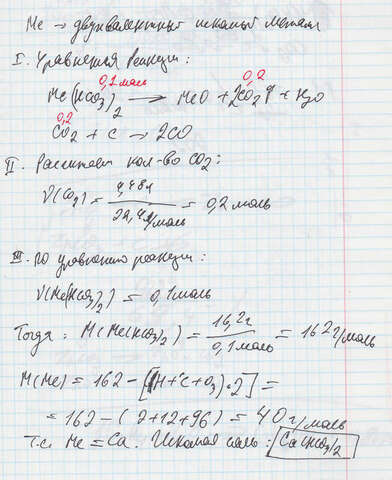 Me → двухвалентный искомый металл
I. Уравнения реакции:
0,1 моль 0,2
Me(HCO₃)₂ → MeO + 2CO₂↑ + H₂O
0,2
CO₂ + C → 2CO
II. Рассчитаем кол-во CO₂:
ν(CO₂) = 4,48л / 22,4л/моль = 0,2 моль
III. По уравнению реакции:
ν(Me(HCO₃)₂) = 0,1 моль
Тогда: M(Me(HCO₃)₂) = 16,2г / 0,1 моль = 162 г/моль
M(Me) = 162 - [(H + C + O₃)·2] =
= 162 - (2+12+96) = 40 г/моль
Т.е. Me = Ca. Искомая соль: Ca(HCO₃)₂